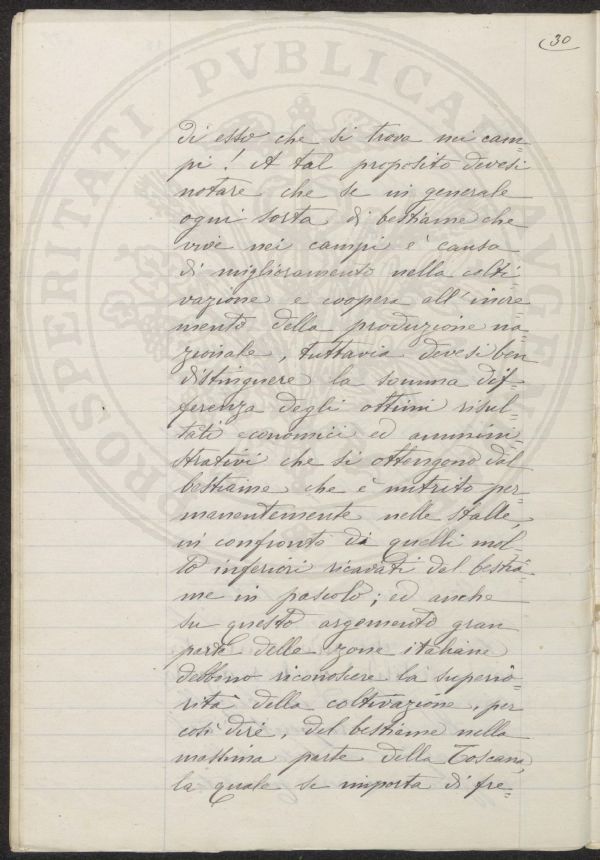 30
di esso che si trova nei cam=
pi! A tal proposito devesi
notare che se in generale
ogni sorta di bestiame che
vive nei campi è causa
di miglioramento nella colti=
vazione e coopera all'incre=
mento della produzione na=
zionale, tuttavia devesi ben
distinguere la somma dif=
ferenza degli ottimi risul=
tati economici ed ammini=
strativi che si ottengono dal
bestiame che è nutrito per=
manentemente nelle stalle,
in confronto di quelli mol=
to inferiori ricavati del bestia=
me in pascolo; ed anche
su questo argomento gran
parte delle zone italiane
debbono riconoscere la superio=
rità della coltivazione, per
così dire, del bestiame nella
massima parte della Toscana,
la quale se importa di fre=
PROSPERITATI PVBLICAE AVGENDAE